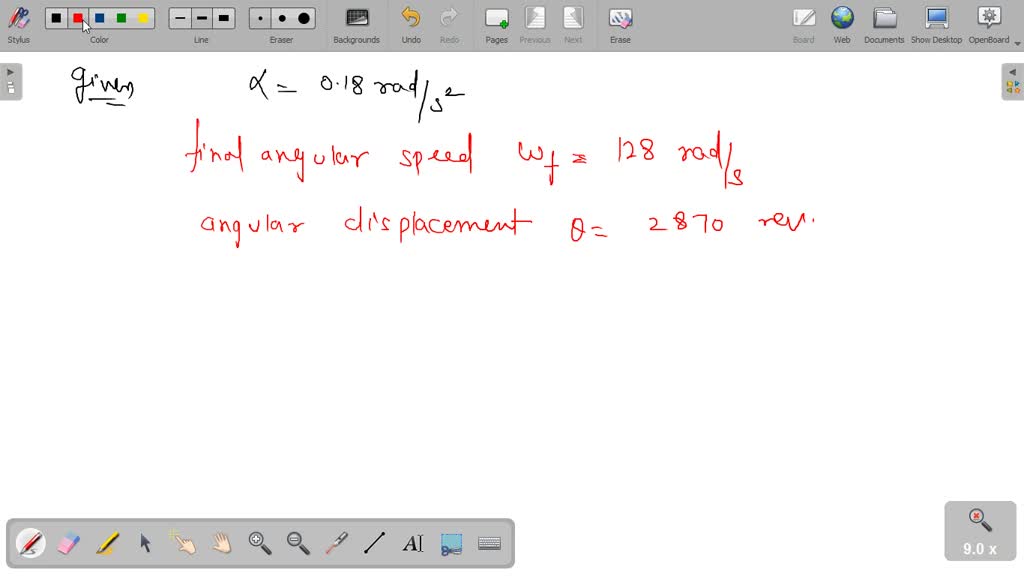 Stylus Color Line Eraser Backgrounds Undo Redo Pages Previous Next Erase Board Web Documents Show Desktop OpenBoard
given α = 0.18 rad/s²
final angular speed ωf = 128 rad/s
angular displacement θ = 2870 rev.
9.0 x